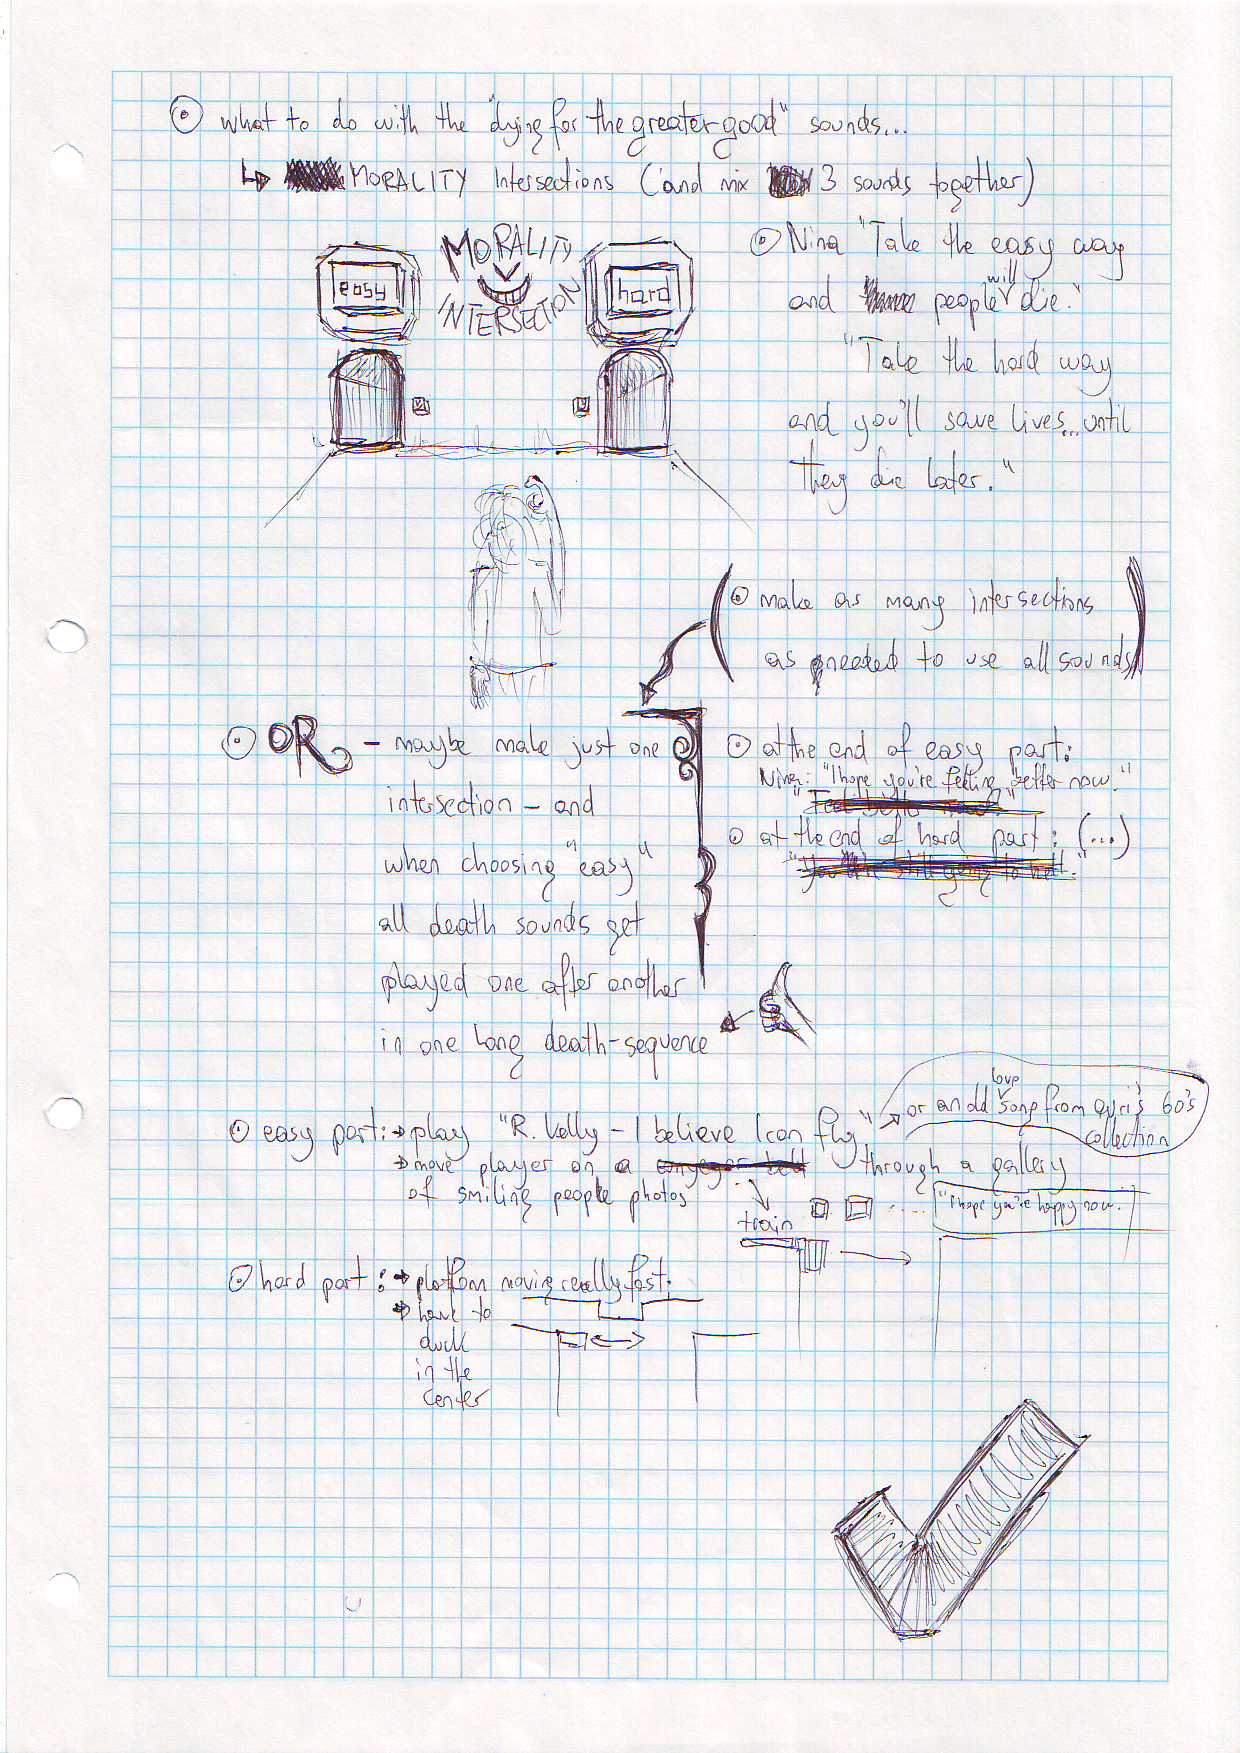 what to do with the "dying for the greater good" sounds...
MORALITY Intersections (and mix 3 sounds together)
MORALITY
INTERSECTION
easy
hard
Nina "Take the easy way
and people will die."
"Take the hard way
and you'll save lives... until
they die later."
make as many intersections
as needed to use all sounds
OR - maybe make just one
intersection - and
when choosing "easy"
all death sounds get
played one after another
in one long death-sequence
at the end of easy part:
Nina: "I hope you're feeling better now."
"Feel better now."
at the end of hard part: (...)
"You're still going to hell."
easy part: play "R. Kelly - I believe I can fly"
or an old love song from avri's 60's
collection
move player on a conveyor belt through a gallery
of smiling people photos
train
"I hope you're happy now."
hard part: platform moving really fast.
have to
duck
in the
center